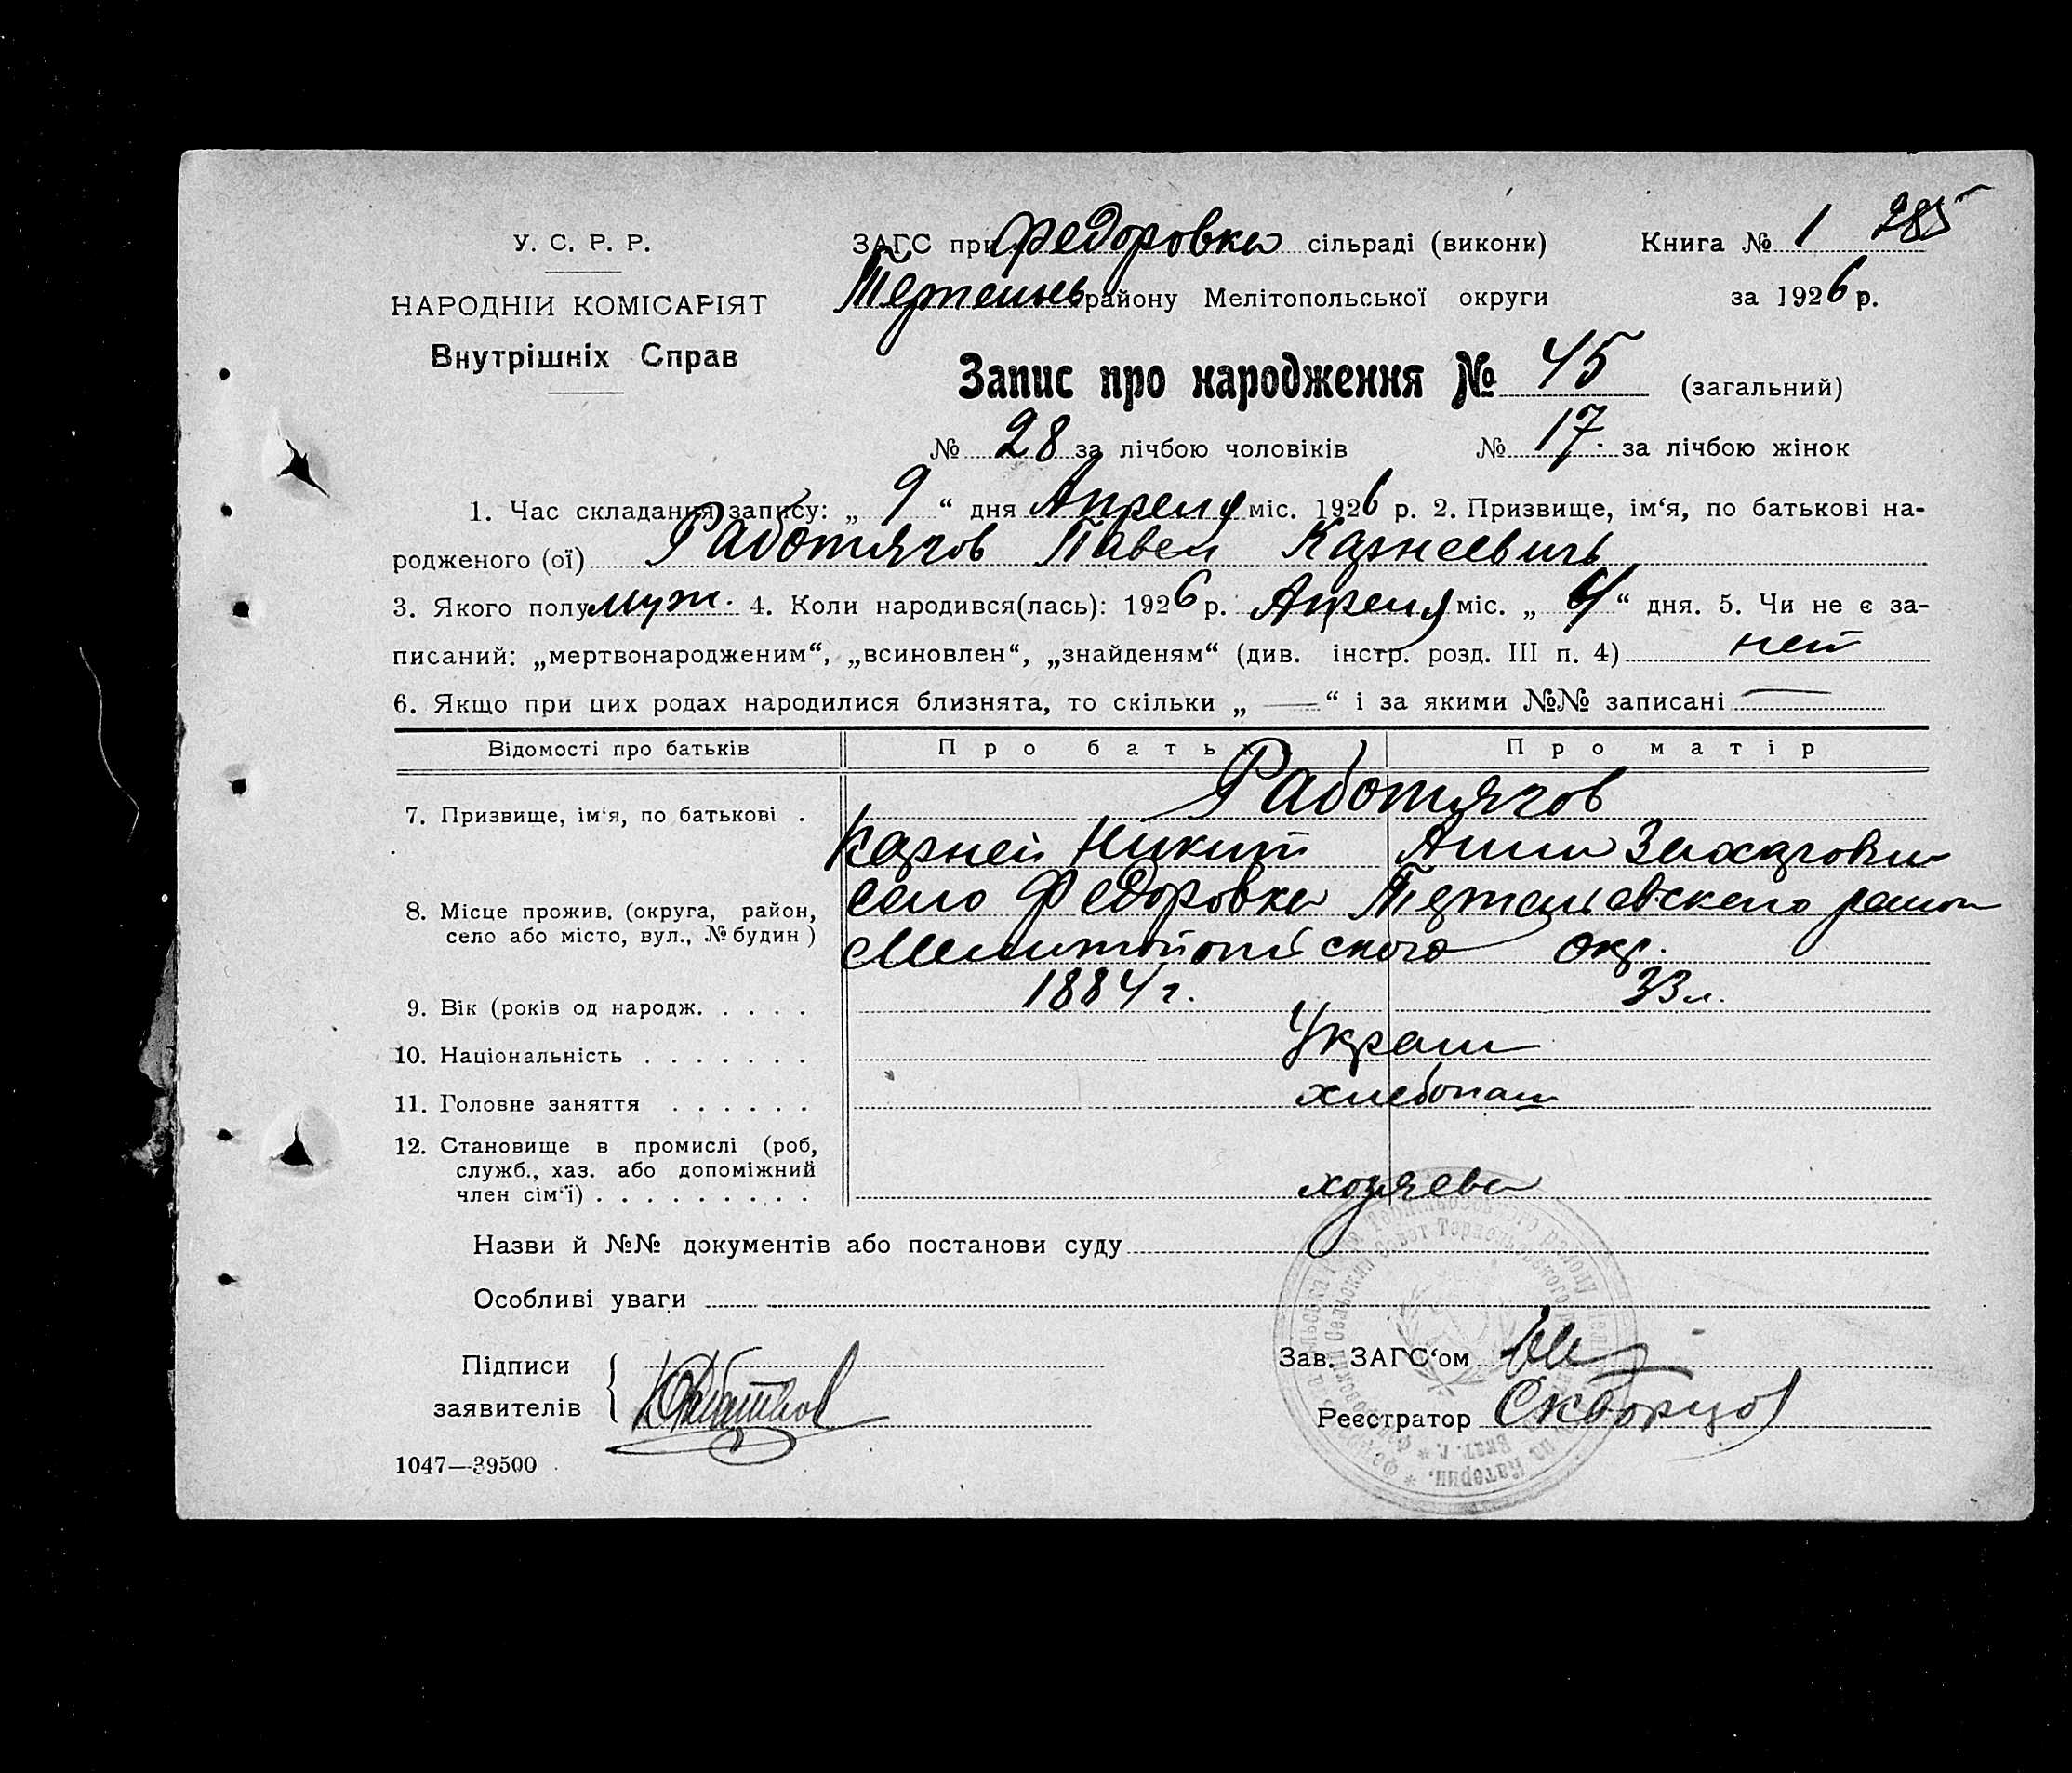 У. С. Р. Р.
НАРОДНІЙ КОМІСАРІЯТ
Внутрішніх Справ
ЗАГС при Федоровка сільраді (виконк) Книга № 1 285
району Мелітопольської округи за 1926 р.
Запис про народження № 45 (загальний)
№ 28 за лічбою чоловіків № 17 за лічбою жінок
1. Час складання запису: „ 9 “ дня Апреля міс. 1926 р. 2. Призвище, ім‘я, по батькові на-
родженого (ої) Работягов Павел Карнеевичь
3. Якого полу муж. 4. Коли народився(лась): 1926 р. Апреля міс. „ “ дня. 5. Чи не є за-
писаний: „мертвонародженим“, „всиновлен“, „знайденям“ (див. інстр. розд. III п. 4) нет
6. Якщо при цих родах народилися близнята, то скільки „ — “ і за якими №№ записані —
Відомості про батьків Про батька Про матір
7. Призвище, ім‘я, по батькові . Работягов
Карней Никит Анна Захаровна
8. Місце прожив. (округа, район, село Федоровка район
село або місто, вул., № будин ) Мелитопольского окр.
9. Вік (років од народж. . . . . 1884 г. 33 л.
10. Національність . . . . . . . Украин
11. Головне заняття . . . . . . хлебопаш
12. Становище в промислі (роб,
служб., хаз. або допоміжний
член сім‘ї) . . . . . . . . . хозяева
Назви й №№ документів або постанови суду
Особливі уваги
Підписи
заявителів
Зав. ЗАГС‘ом
Реєстратор Скворцов
1047—39500